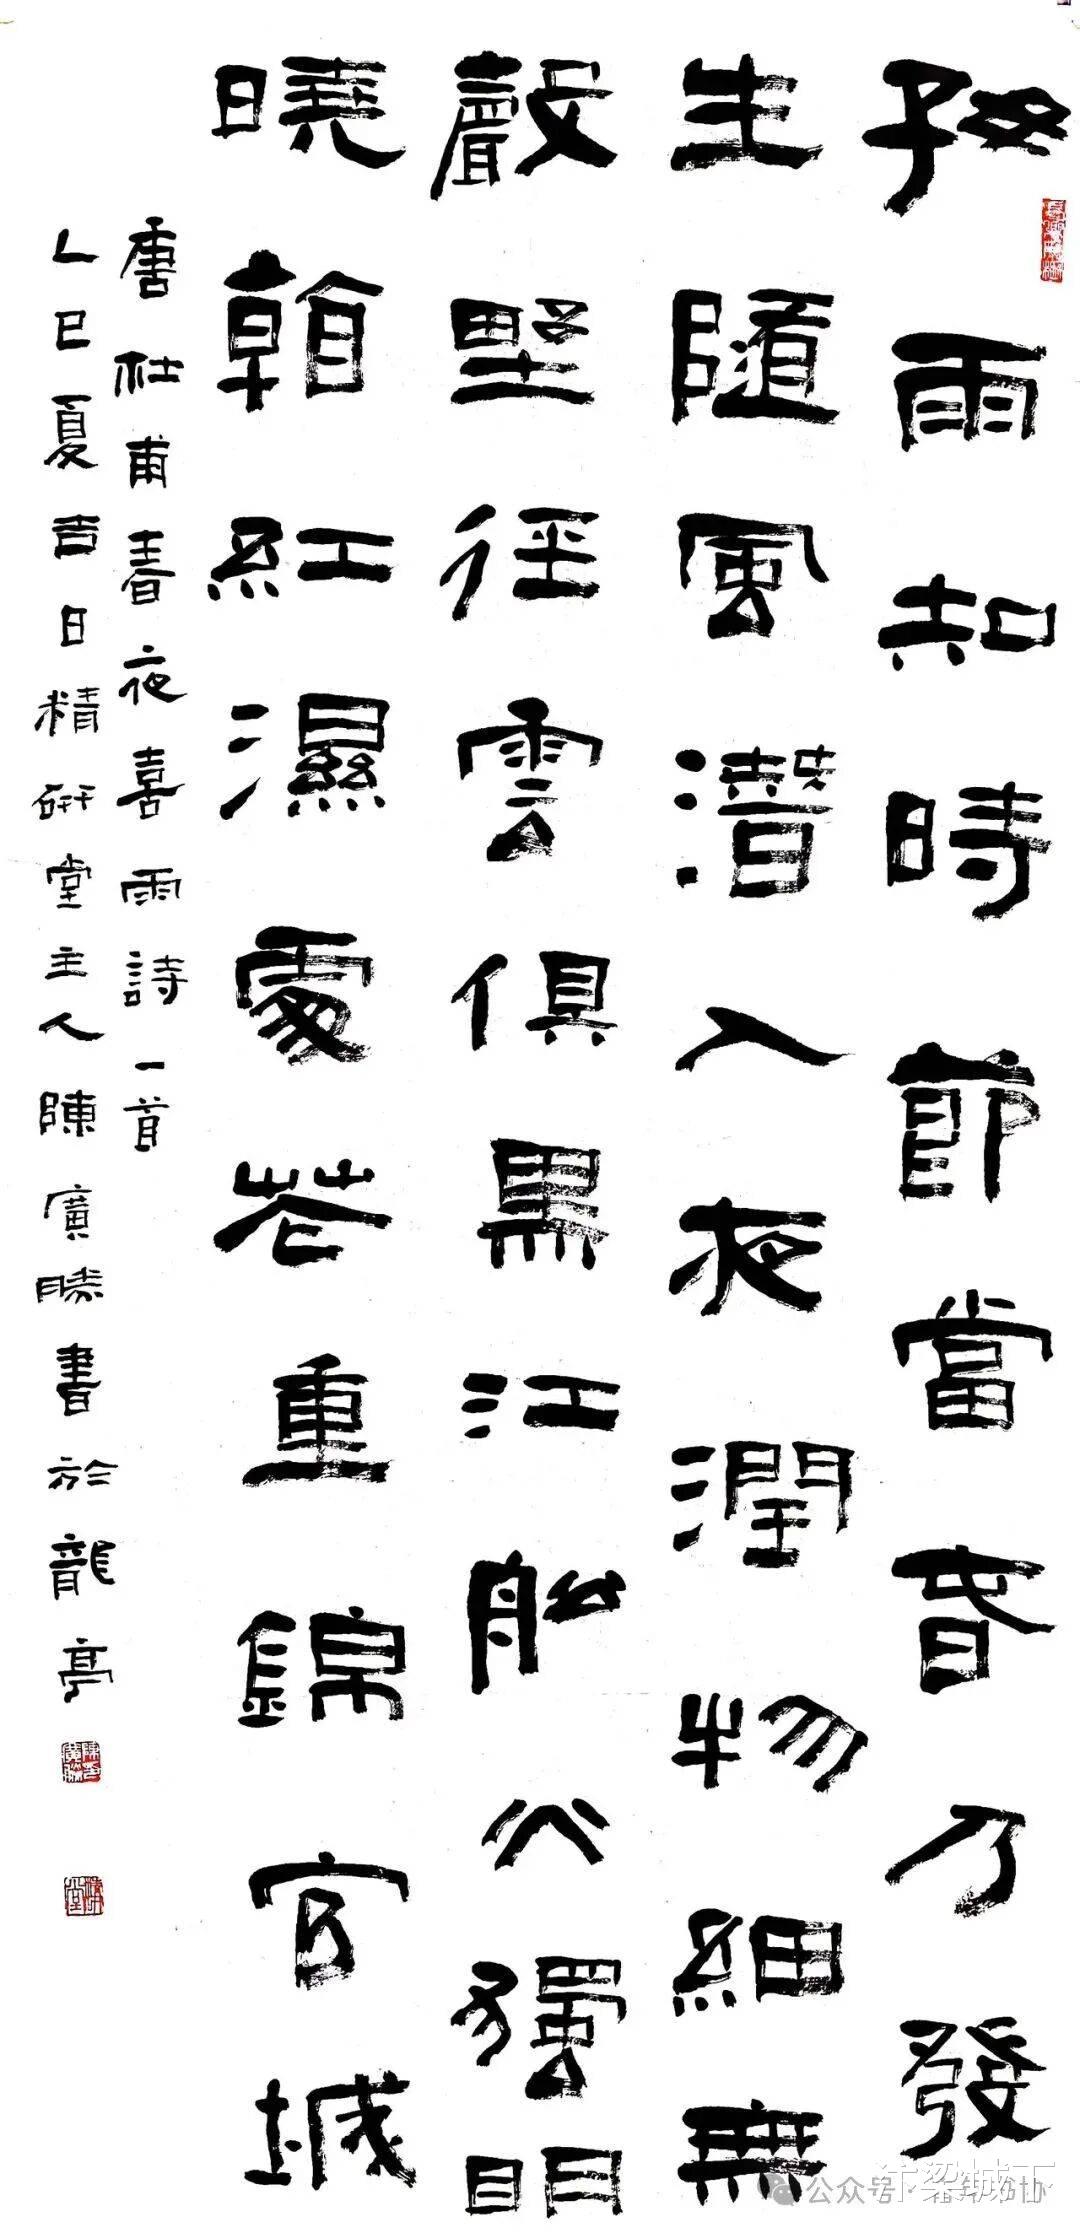 好雨知時節當春乃發
生隨風潛入夜潤物細無
聲野徑雲俱黑江船火獨明
曉看紅濕處花重錦官城
唐杜甫春夜喜雨詩一首
乙巳夏吉日精研堂主人陳廣勝書於龍亭
公众号
汴梁城下